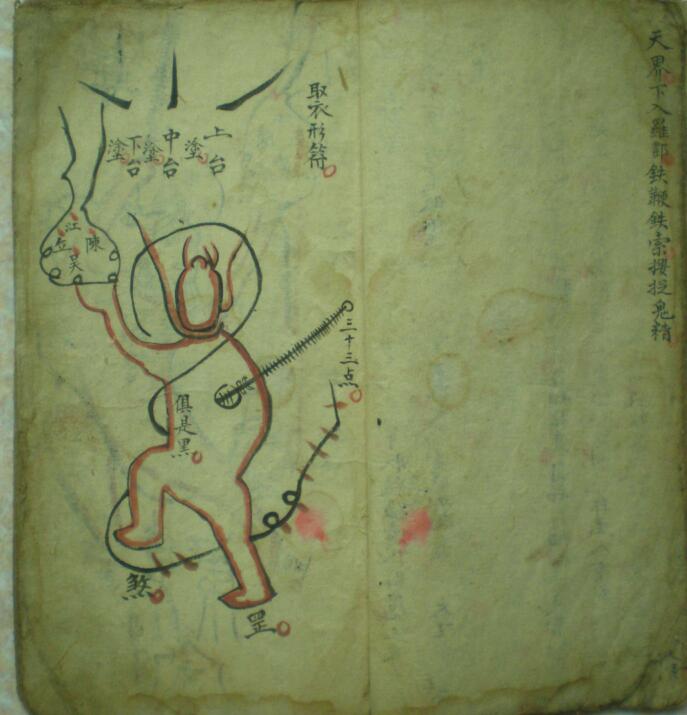 天界下入羅酆鉄鞭鉄索接捉鬼精
取衣形符
上台
塗
中台
塗
下台
塗
陳
江
吴
三十三点
俱是黑
煞
罡